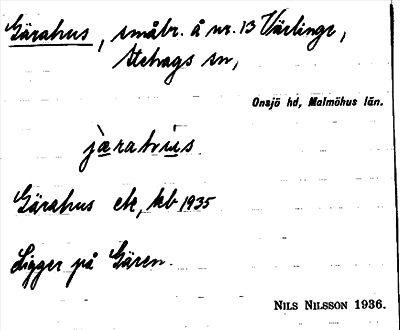 Gärahus, småbr. å nr. 13 Värlinge,
Stehags sn,
Onsjö hd, Malmöhus län.
jæratv̄us
Gärahus ek, kb 1935
Ligger på Gären.
NILS NILSSON 1936.